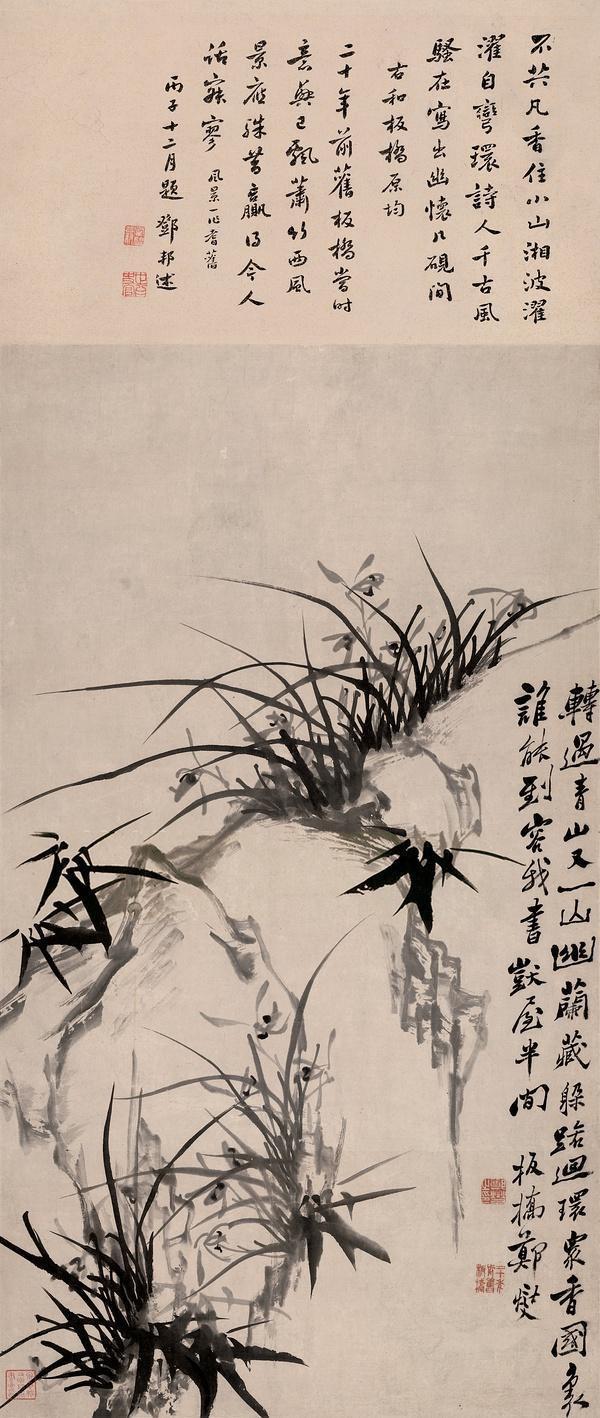 不共凡香住小山湘波濯
濯自彎環詩人千古風
騷在寫出幽懷几硯間
右和板橋原均
二十年前舊板橋當時
意興已飄蕭竹西風
景應殊昔贏得今人
話寂寥 風景一作耆舊
丙子十二月題 鄧邦述
轉過青山又一山幽蘭藏躲路迴環衆香國裏
誰能到容我書獃屋半間 板橋鄭燮